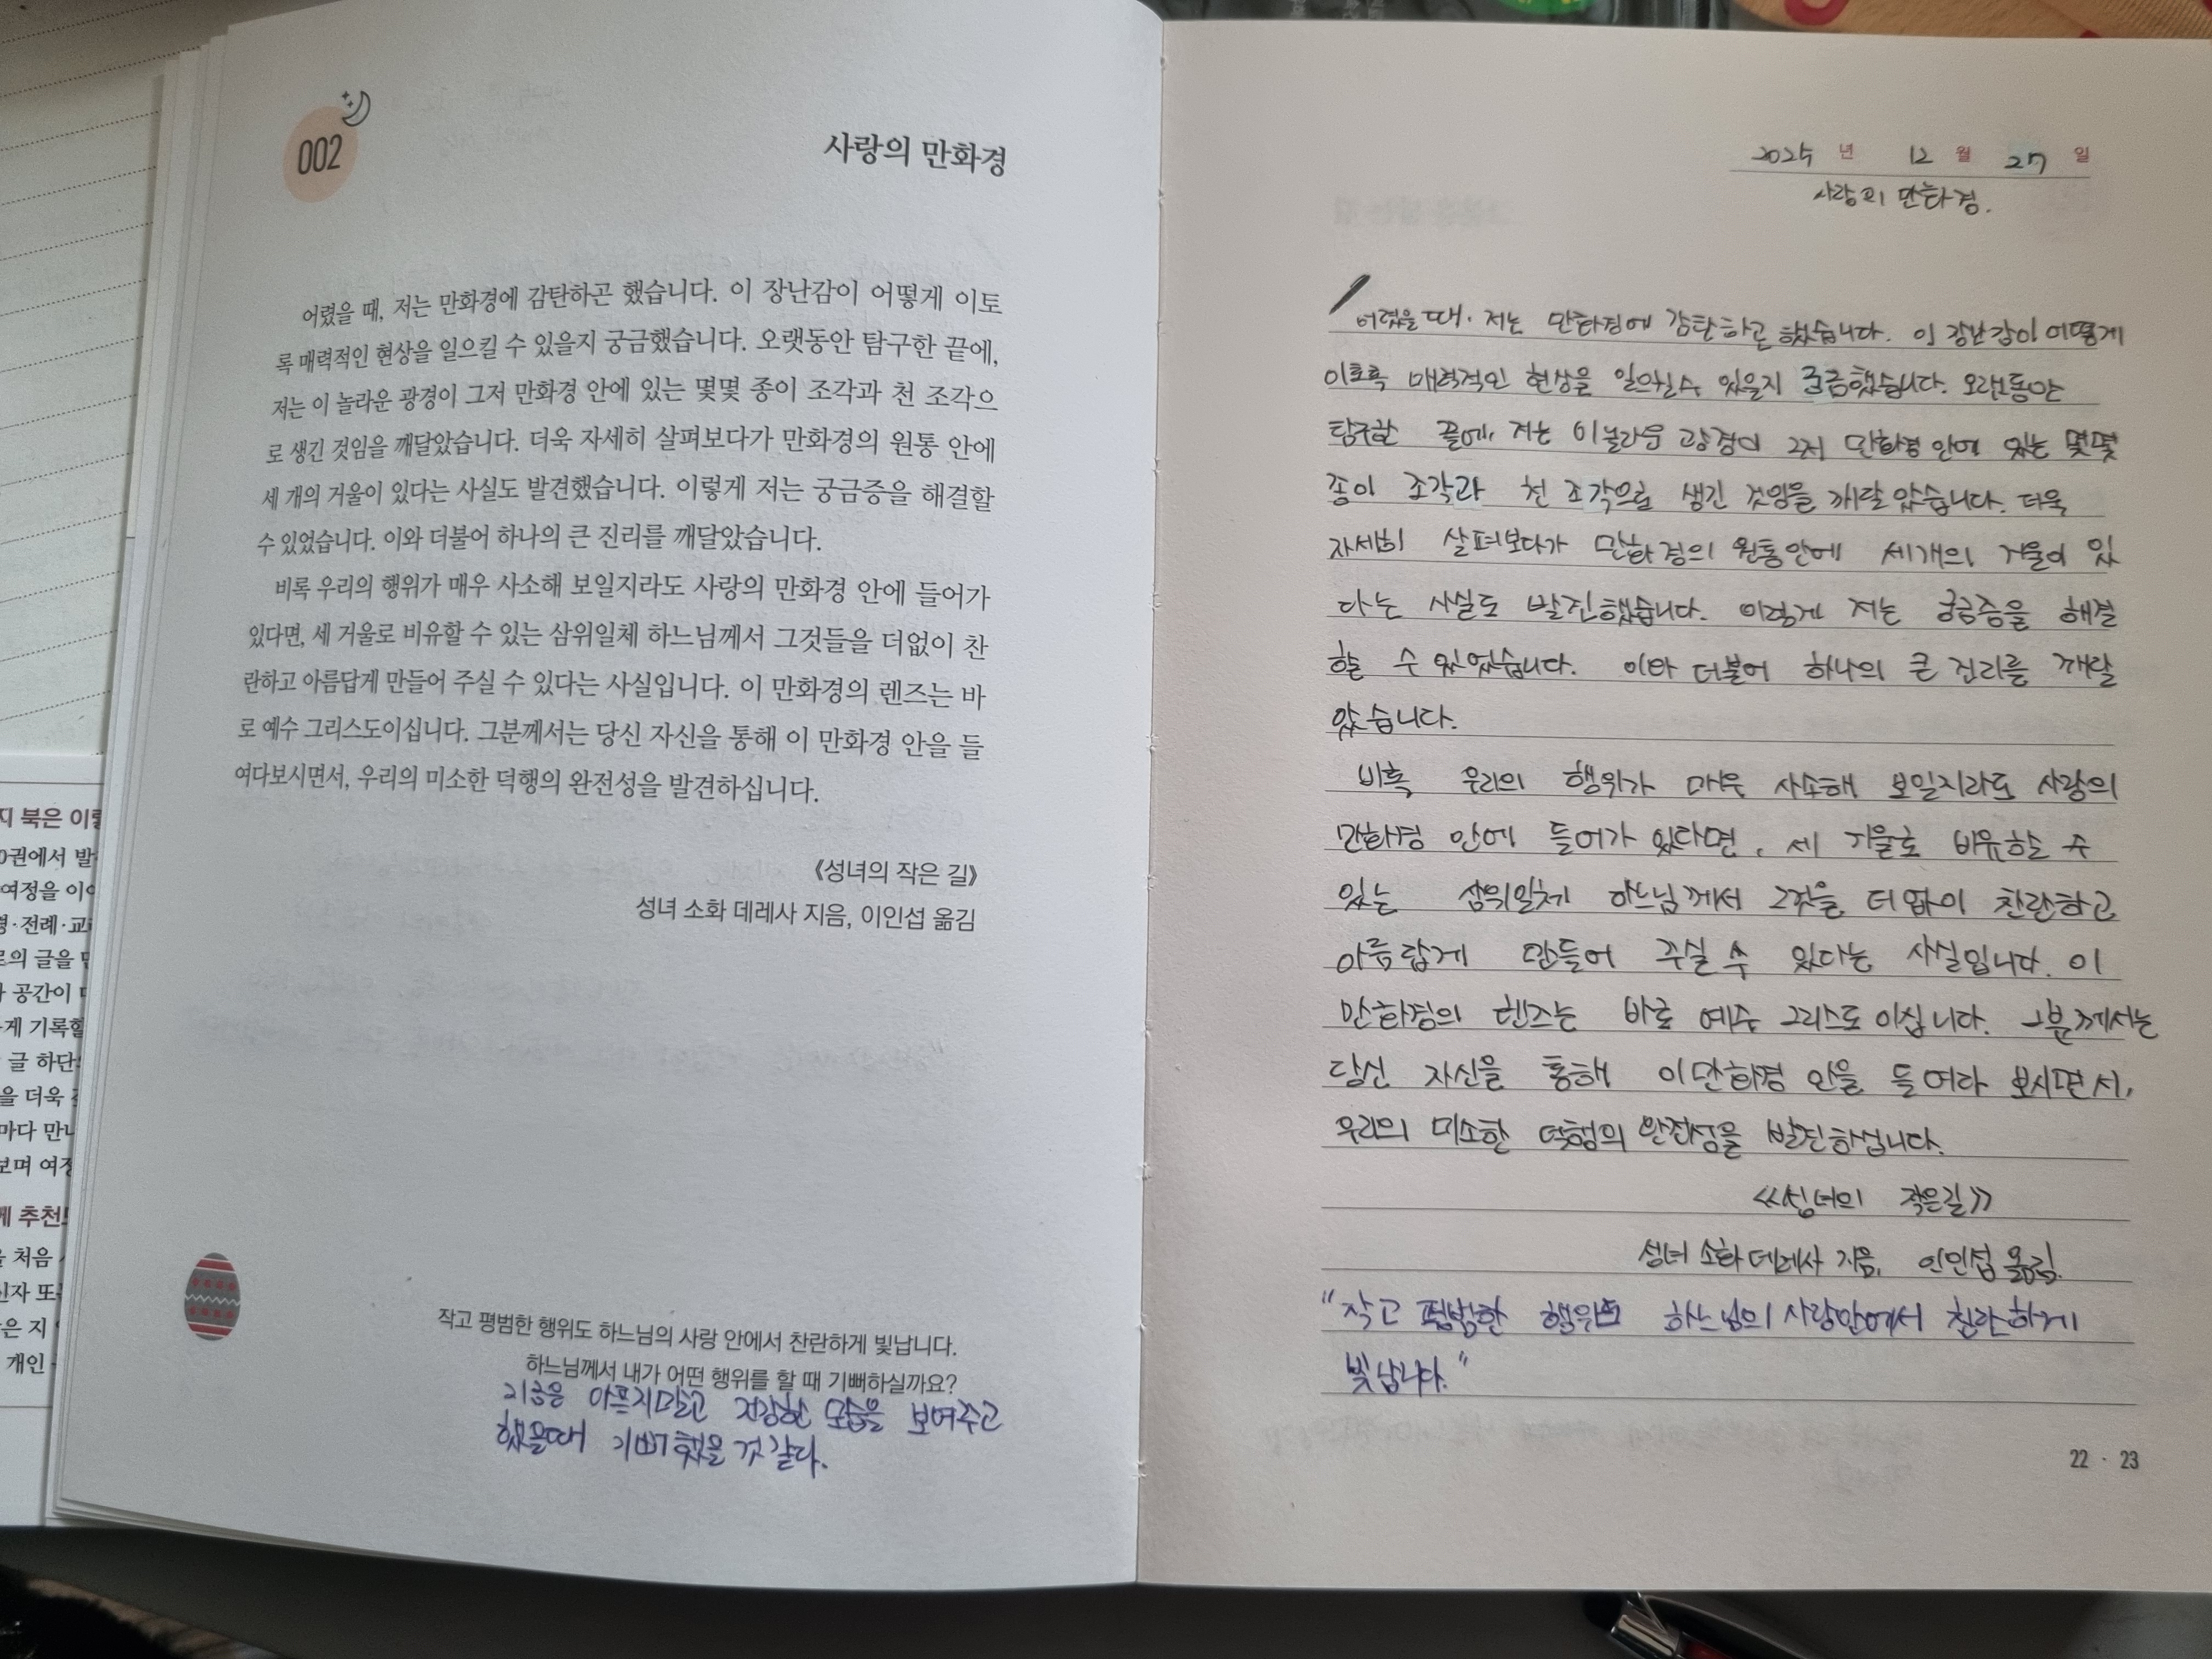 002
사랑의 만화경
어렸을 때, 저는 만화경에 감탄하곤 했습니다. 이 장난감이 어떻게 이토
록 매력적인 현상을 일으킬 수 있을지 궁금했습니다. 오랫동안 탐구한 끝에,
저는 이 놀라운 광경이 그저 만화경 안에 있는 몇몇 종이 조각과 천 조각으
로 생긴 것임을 깨달았습니다. 더욱 자세히 살펴보다가 만화경의 원통 안에
세 개의 거울이 있다는 사실도 발견했습니다. 이렇게 저는 궁금증을 해결할
수 있었습니다. 이와 더불어 하나의 큰 진리를 깨달았습니다.
비록 우리의 행위가 매우 사소해 보일지라도 사랑의 만화경 안에 들어가
있다면, 세 거울로 비유할 수 있는 삼위일체 하느님께서 그것들을 더없이 찬
란하고 아름답게 만들어 주실 수 있다는 사실입니다. 이 만화경의 렌즈는 바
로 예수 그리스도이십니다. 그분께서는 당신 자신을 통해 이 만화경 안을 들
여다보시면서, 우리의 미소한 덕행의 완전성을 발견하십니다.
《성녀의 작은 길》
성녀 소화 데레사 지음, 이인섭 옮김
작고 평범한 행위도 하느님의 사랑 안에서 찬란하게 빛납니다.
하느님께서 내가 어떤 행위를 할 때 기뻐하실까요?
지금은 아프지말고 건강한 모습을 보여주고
했을때 기뻐했을 것 같다.
2025 년 12 월 27 일
사랑의 만화경.
어렸을 때. 저는 만화경에 감탄하곤 했습니다. 이 장난감이 어떻게
이토록 매력적인 현상을 일으킬수 있을지 궁금했습니다. 오랫동안
탐구한 끝에, 저는 이 놀라운 광경이 그저 만화경 안에 있는 몇몇
종이 조각과 천 조각으로 생긴 것임을 깨달았습니다. 더욱
자세히 살펴보다가 만화경의 원통안에 세개의 거울이 있
다는 사실도 발견했습니다. 이렇게 저는 궁금증을 해결
할 수 있었습니다. 이와 더불어 하나의 큰 진리를 깨달
았습니다.
비록 우리의 행위가 매우 사소해 보일지라도 사랑의
만화경 안에 들어가 있다면, 세 거울로 비유할 수
있는 삼위일체 하느님께서 그것을 더없이 찬란하고
아름답게 만들어 주실 수 있다는 사실입니다. 이
만화경의 렌즈는 바로 예수 그리스도이십니다. 그분께서는
당신 자신을 통해 이만화경 안을 들여다 보시면서,
우리의 미소한 덕행의 완전성을 발견하십니다.
《성녀의 작은길》
성녀 소화 데레사 지음, 이인섭 옮김.
"작고 평범한 행위도 하느님의 사랑안에서 찬란하게
빛납니다."
22 · 23